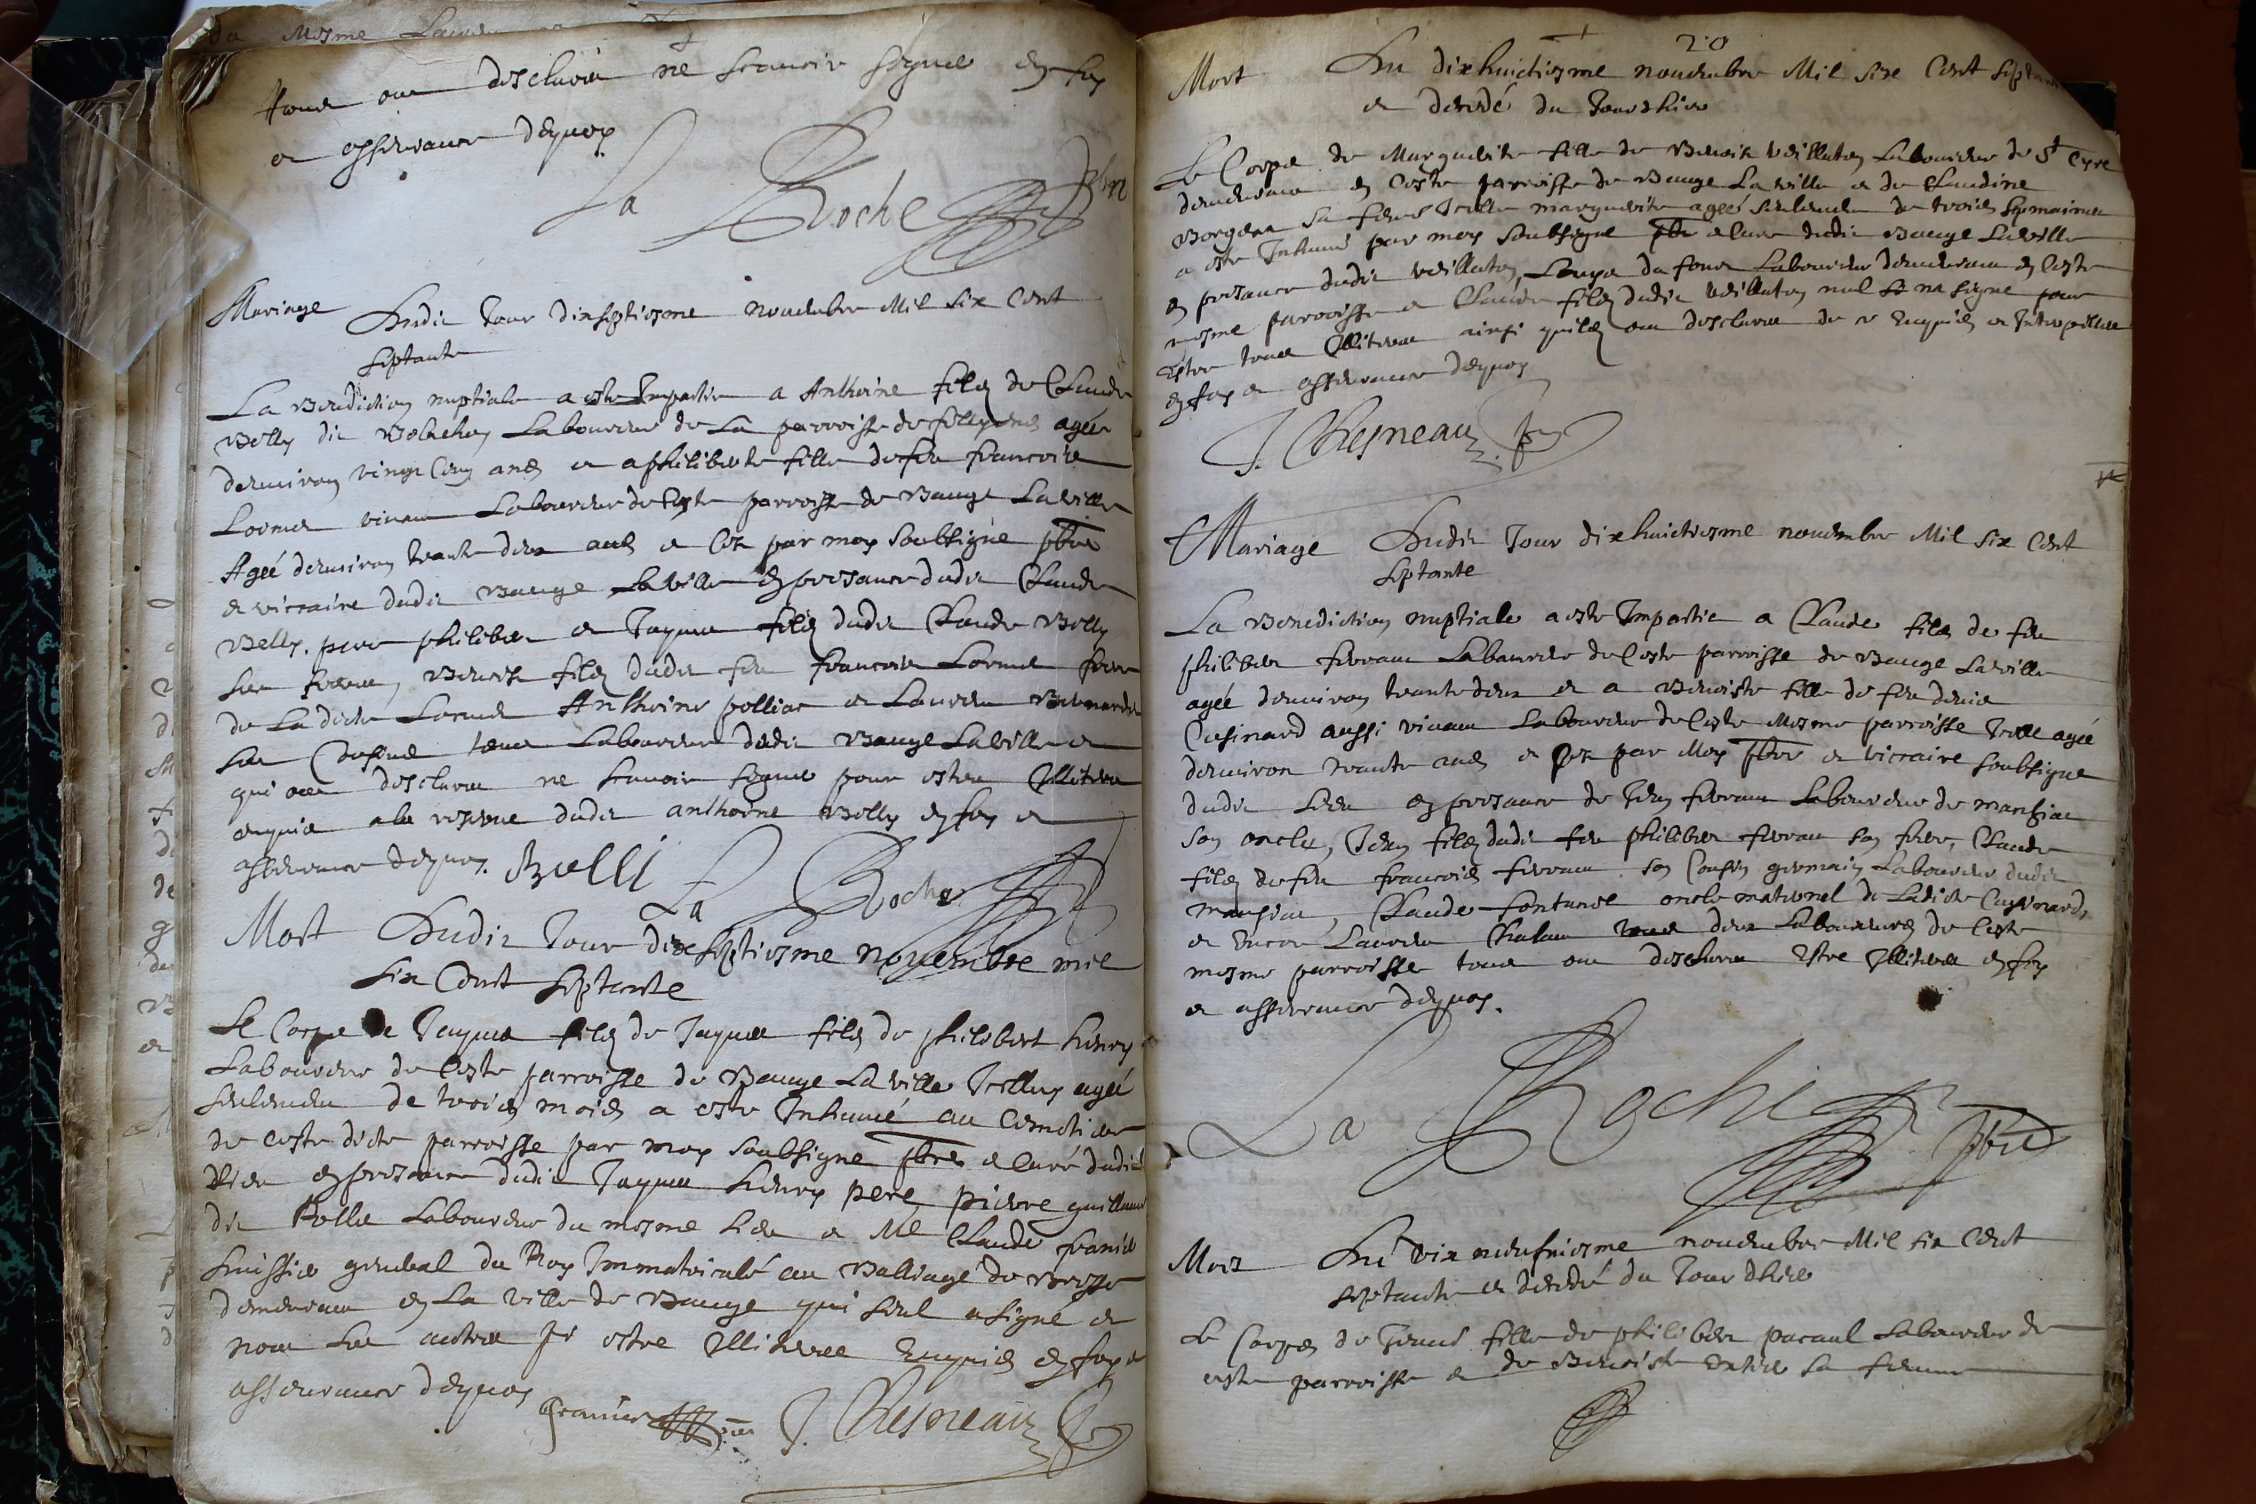 tous ont desclairé ne scavoir signer en foy
et asseurance dequoy
La Roche pbre
Mariage Dudit Jour dixseptiesme novembre Mil six Cent
septante
La Benediction nuptiale a esté Impartie a Anthoine filz de Claude
Belly dit Laboureur de la parroisse de agée
denviron vingt Cinq ans et a philiberte fille de feu francoise
vivant Laboureur de Ceste parroisse de Bauge La ville
Agée denviron trante deux ans et Ce par moy soubsigné pbre
et viccaire dudit Bauge La ville en presance dudit Claude
Belly, pere philibert et Jaques filz dudit Claude Belly
ses freres, Benoist filz dudit feu francois frere
de La dicte Anthoine polliat et Laurent Bernardet
tous Laboureurs dudit Bauge La ville et
qui ont desclaré ne scavoir signer pour estre Illiteres
enquis a la reserve dudit anthoine Belly en foy et
asseurance dequoy. Belli La Roche
Mort Dudit Jour dixseptiesme novembre mil
six Cent septante
Le Corps de Jaques filz de Jaques filz de philibert henry
Laboureur de Ceste parroisse de Bauge La ville Icelluy agé
seulement de trois mois a esté Inhumé au Cemetiere
de ceste dicte parroisse par moy soubsigné pbre et Curé dudit
Lieu en presance dudit Jaques henry pere pierre guillaume
dit Laboureur du mesme Lieu et Me Claude
general du Roy Immatriculé au Balliage de Bresse
demeurant en La ville de Bauge qui seul a signé et
non Les autres po estre Illiteres Enquis en foy et
asseurance dequoy
J. Chesneau
20
Mort Du dixhuictiesme novembre Mil six Cent septante
et decedé du Jour d'hier
Le Corps de Marguerite fille de Benoist Veilleton Laboureur de St Cyre
demeurant en Ceste parroisse de Bauge La ville et de Claudine
sa feme Icelle marguerite agée seulement de trois sepmaines
a esté Inhumé par moy soubsigné pbre et Curé dudit Bauge La ville
en presance dudit Veilleton, Loups du four Laboureur demeurant en Ceste
mesme parroisse et Claude filz dudit Veilleton nul na signé pour
Estre tous Illiteres ainsi quilz ont desclaré de ce Enquis et Interpelles
en foy et asseurance dequoy
J. Chesneau
Mariage Dudit Jour dixhuictiesme novembre Mil six Cent
septante
La Benediction nuptiale a esté Impartie a Claude filz de feu
philibert ferrant Laboureur de Ceste parroisse de Bauge La ville
agée denviron trante deux et a Benoiste fille de feu denis
Cusinard aussi vivant Laboureur de Ceste Mesme parroisse Icelle agée
denviron trante ans et Ce par Moy pbre et viccaire soubsigné
dudit Lieu en presance de Jean ferrant Laboureur de
son oncle, Jean filz dudit feu philibert ferrant son frere, Claude
filz de feu francois ferrant son Cousin germain Laboureur dudit
Claude oncle maternel de Ladicte Cusinard,
et encore Laurent tous deux Laboureurs de Ceste
mesme parroisse tous ont desclaré Estre Illiteres en foy
et asseurance dequoy.
La Roche pbre
Mort Du dix neufviesme novembre Mil six Cent
septante et decedé du Jour dhier
Le Corps de fille de philibert pacaud Laboureur de
ceste parroisse et de Benoiste sa femme